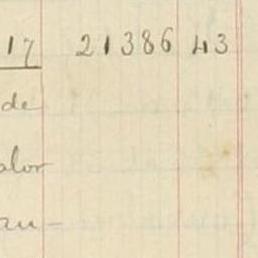 17 21386 43
de
alor
au-